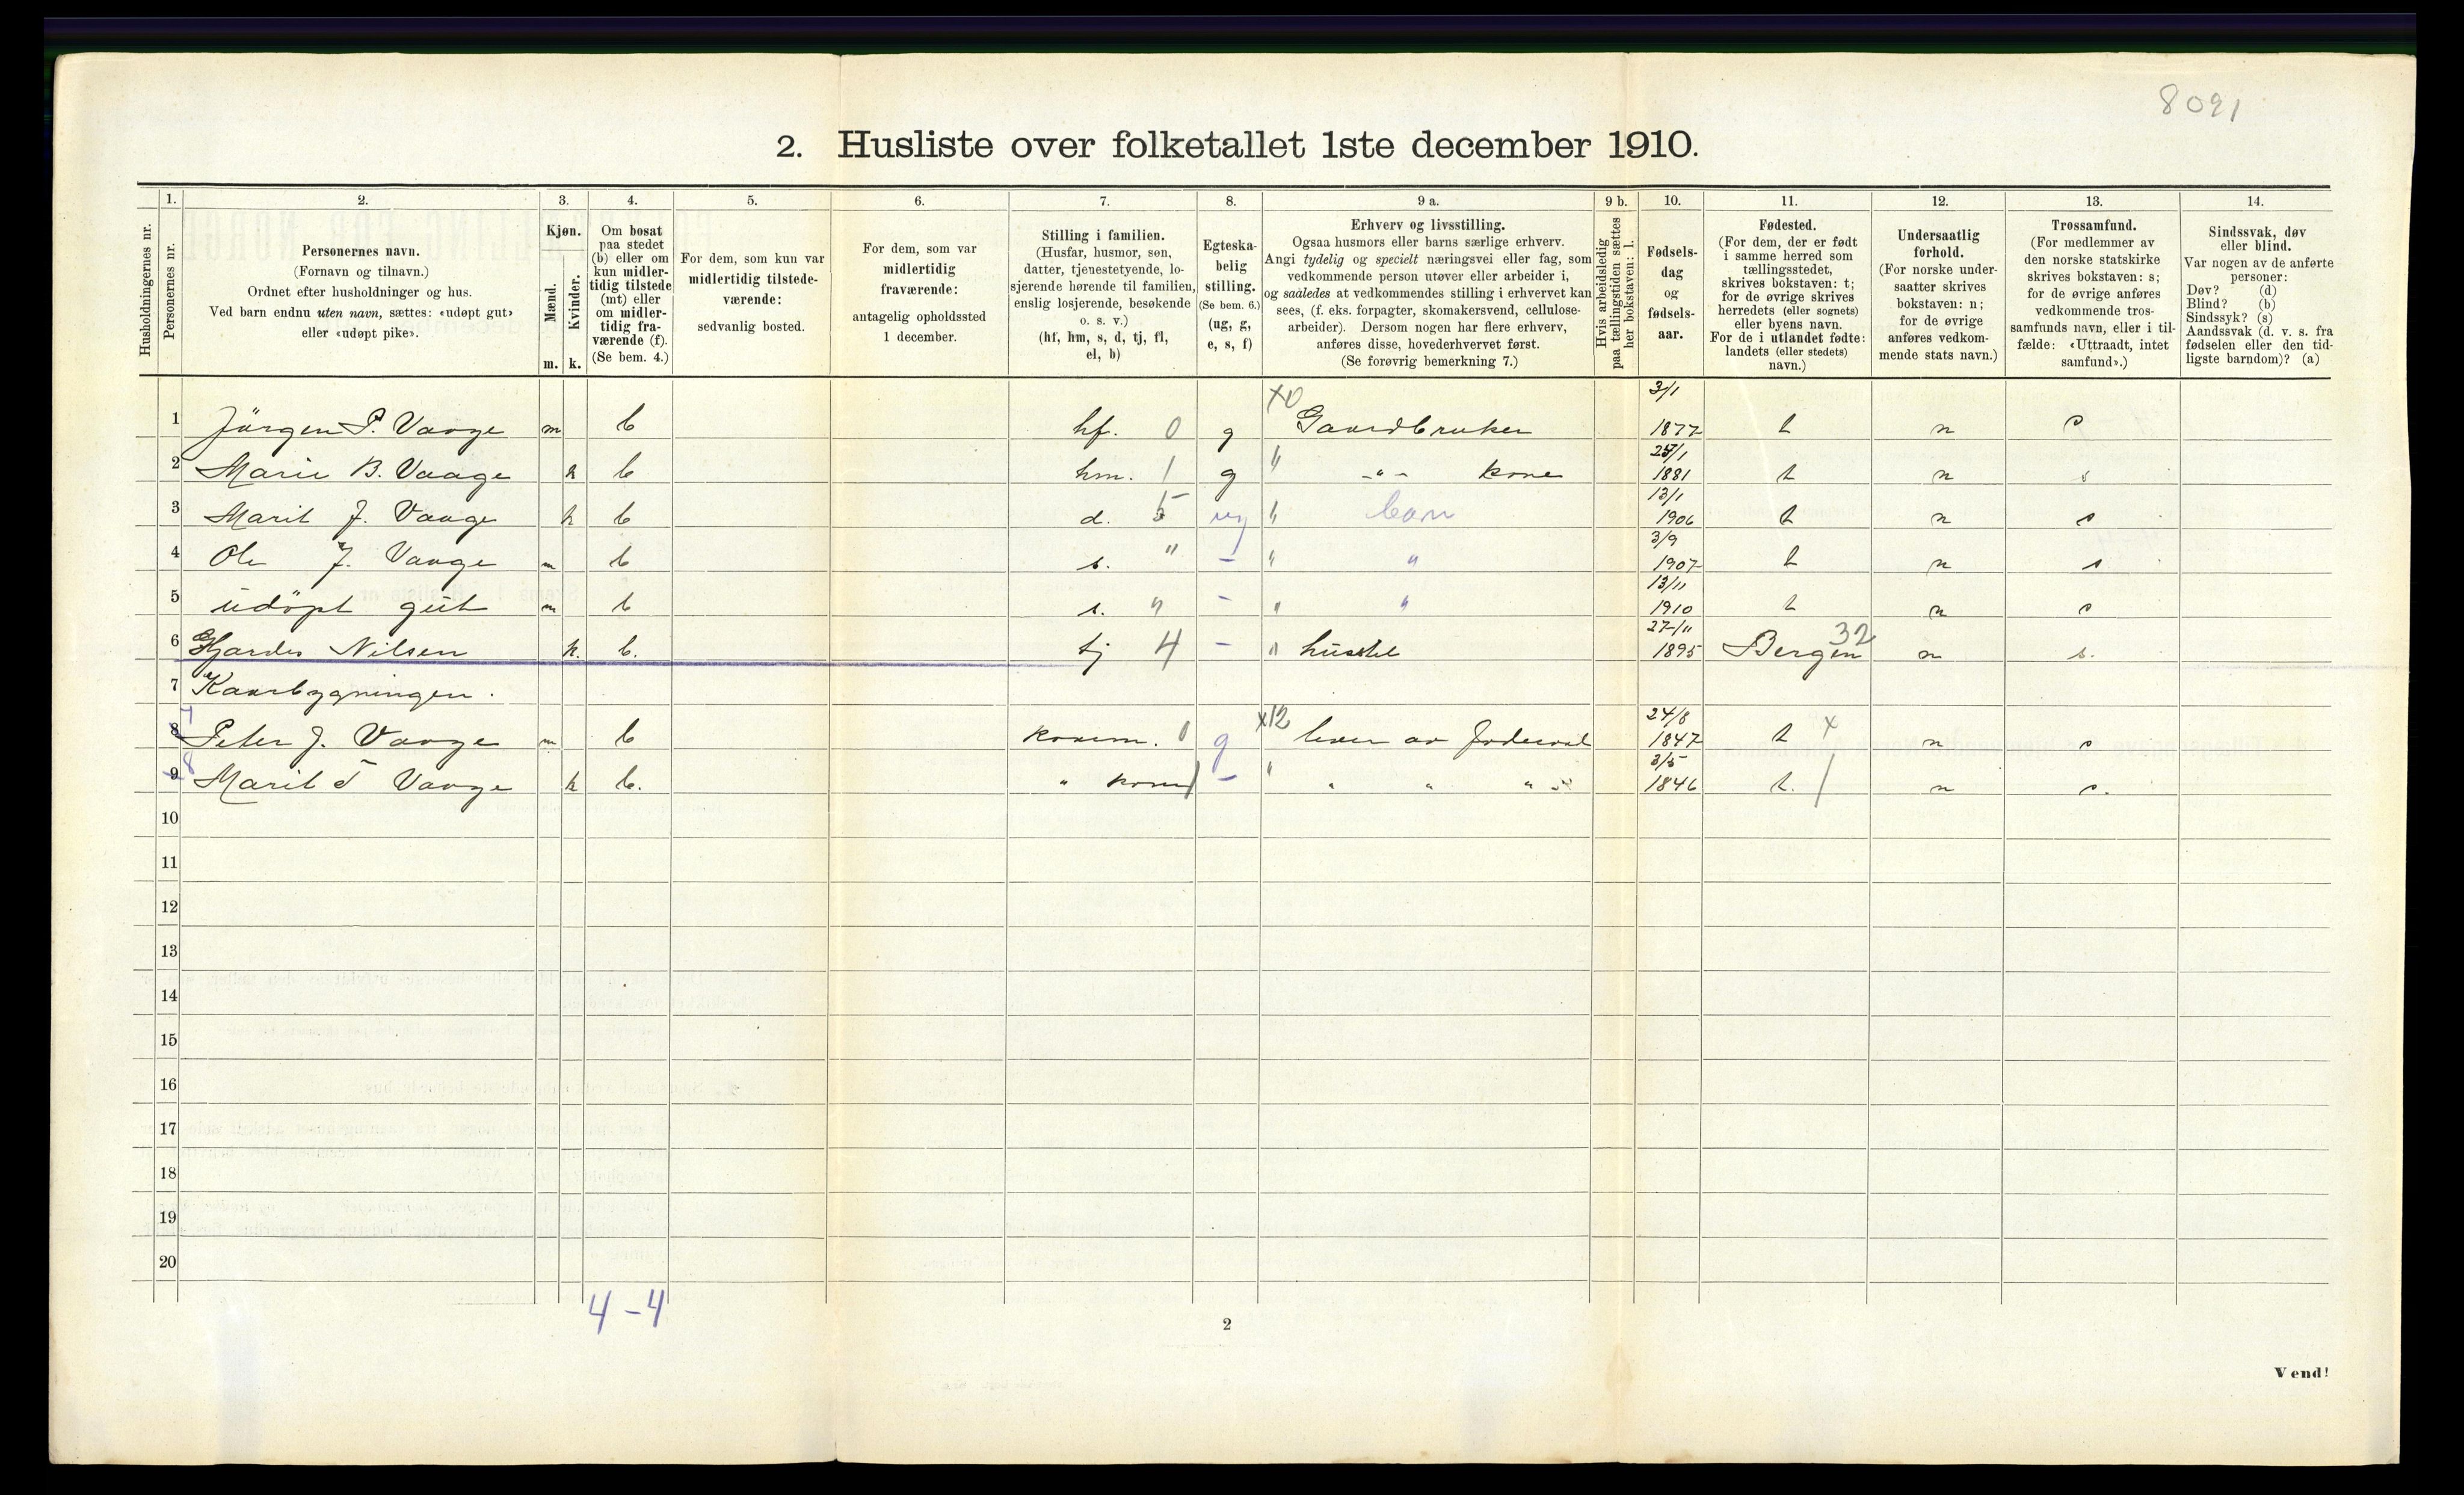 8091
2. Husliste over folketallet 1ste december 1910.
Husholdningernes nr.
1. Personernes nr.
2. Personernes navn.
(Fornavn og tilnavn.)
Ordnet efter husholdninger og hus.
Ved barn endnu uten navn, sættes: «udøpt gut»
eller «udøpt pike».
3. Kjøn.
Mænd. Kvinder.
m. k.
4. Om bosat
paa stedet
(b) eller om
kun midler-
tidig tilstede
(mt) eller
om midler-
tidig fra-
værende (f).
(Se bem. 4.)
5. For dem, som kun var
midlertidig tilstede-
værende:
sedvanlig bosted.
6. For dem, som var
midlertidig
fraværende:
antagelig opholdssted
1 december.
7. Stilling i familien.
(Husfar, husmor, søn,
datter, tjenestetyende, lo-
sjerende hørende til familien,
enslig losjerende, besøkende
o. s. v.)
(hf, hm, s, d, tj, fl,
el, b)
8. Egteska-
belig
stilling.
(Se bem. 6.)
(ug, g,
e, s, f)
9 a. Erhverv og livsstilling.
Ogsaa husmors eller barns særlige erhverv.
Angi tydelig og specielt næringsvei eller fag, som
vedkommende person utøver eller arbeider i,
og saaledes at vedkommendes stilling i erhvervet kan
sees, (f. eks. forpagter, skomakersvend, cellulose-
arbeider). Dersom nogen har flere erhverv,
anføres disse, hovederhvervet først.
(Se forøvrig bemerkning 7.)
9 b. Hvis arbeidsledig
paa tællingstiden sættes
her bokstaven: l.
10. Fødsels-
dag
og
fødsels-
aar.
11. Fødested.
(For dem, der er født
i samme herred som
tællingsstedet,
skrives bokstaven: t;
for de øvrige skrives
herredets (eller sognets)
eller byens navn.
For de i utlandet fødte:
landets (eller stedets)
navn.)
12. Undersaatlig
forhold.
(For norske under-
saatter skrives
bokstaven: n;
for de øvrige
anføres vedkom-
mende stats navn.)
13. Trossamfund.
(For medlemmer av
den norske statskirke
skrives bokstaven: s;
for de øvrige anføres
vedkommende tros-
samfunds navn, eller i til-
fælde: «Uttraadt, intet
samfund».)
14. Sindssvak, døv
eller blind.
Var nogen av de anførte
personer:
Døv? (d)
Blind? (b)
Sindssyk? (s)
Aandssvak (d. v. s. fra
fødselen eller den tid-
ligste barndom)? (a)
1 Jörgen P. Vaage m b hf. 0 g X0 Gaardbruker 3/1 1877 t n s
2 Marie B. Vaage k b hm. 1 g " -"- kone 1/1 1881 t n s
3 Marit J. Vaage k b d. 5 ug " barn 13/1 1906 t n s
4 Ole J. Vaage m b s. " - " " 3/9 1907 t n s
5 udöpt gut m b s. " - " " 13/11 1910 t n s
6 Nilsen k. b. tj 4 - " 27/11 1895 Bergen 32 n s.
7 Kaarbygningen.
8 7 Peter J. Vaage m b kaarm. 0 g x12 lever av 24/8 1847 t x n s
9 8 Marit T Vaage k b. " kone 1 - " " " " 3/5 1846 t. / n s.
10
11
12
13
14
15
16
17
18
19
20
4 - 4
2
Vend!